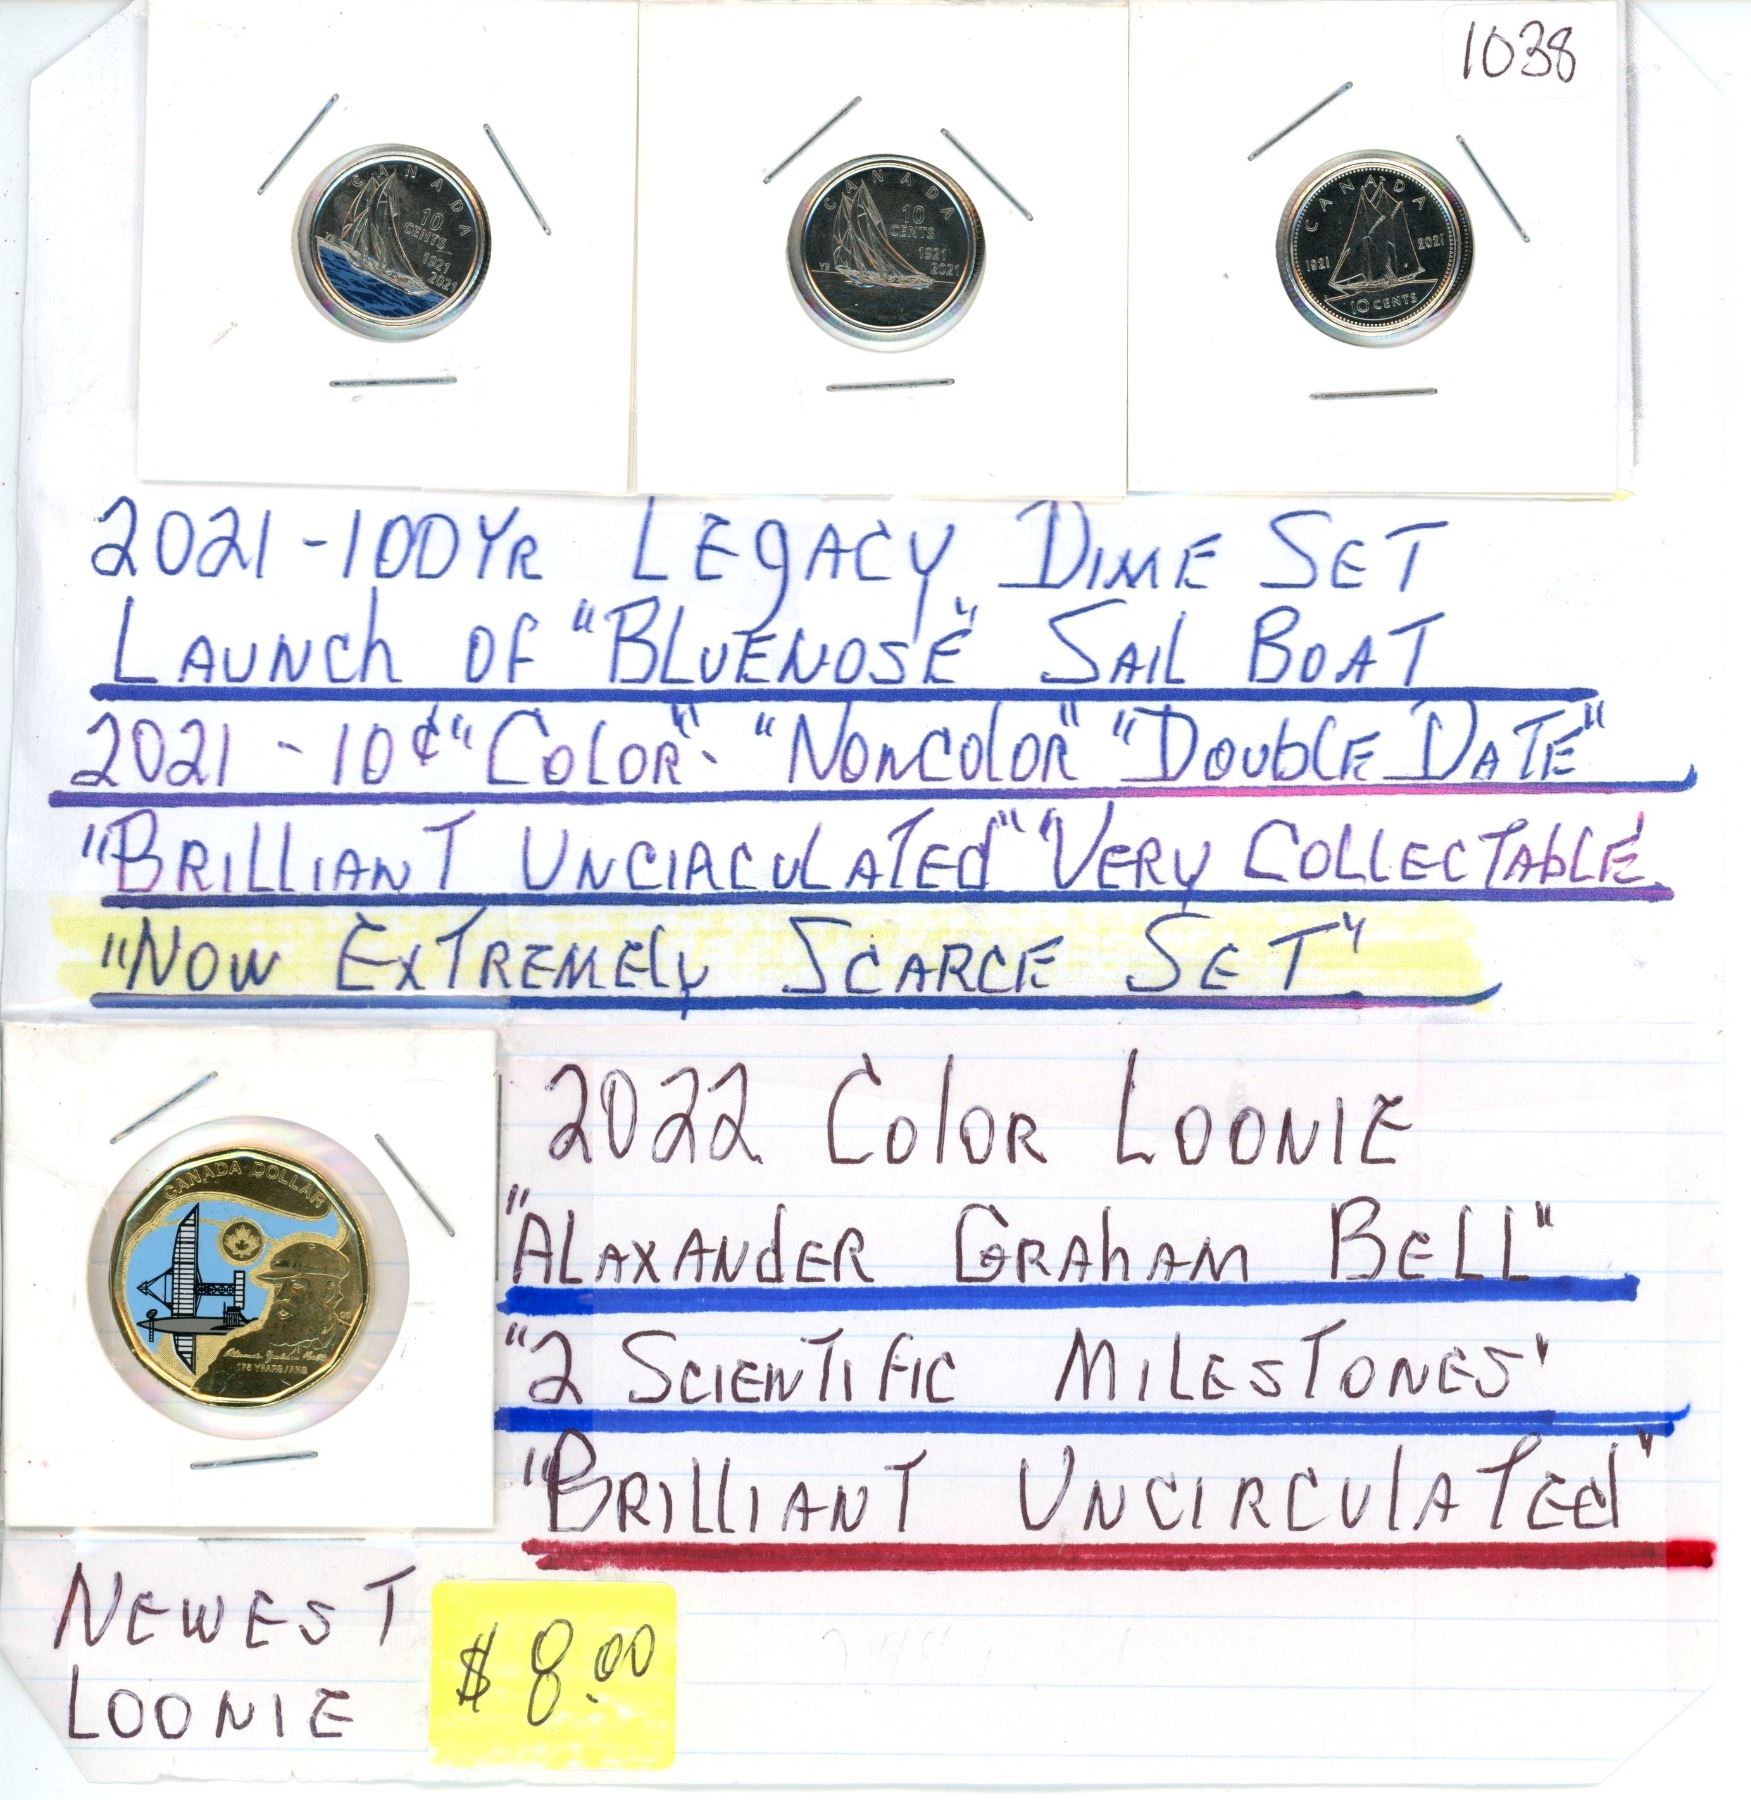 1038
CANADA
10
CENTS
1921
2021
CANADA
10
CENTS
1921
2021
CANADA
1921
2021
10 CENTS
2021-100YR LEGACY DIME SET
LAUNCH OF "BLUENOSE" SAIL BOAT
2021-10¢ "COLOR"- "NONCOLOR" "DOUBLE DATE"
"BRILLIANT UNCIRCULATED" "VERY COLLECTABLE
"NOW EXTREMELY SCARCE SET"
CANADA DOLLAR
175 YEARS/ANS
2022 COLOR LOONIE
"ALAXANDER GRAHAM BELL"
"2 SCIENTIFIC MILESTONES"
"BRILLIANT UNCIRCULATED"
NEWEST
LOONIE
$8.00